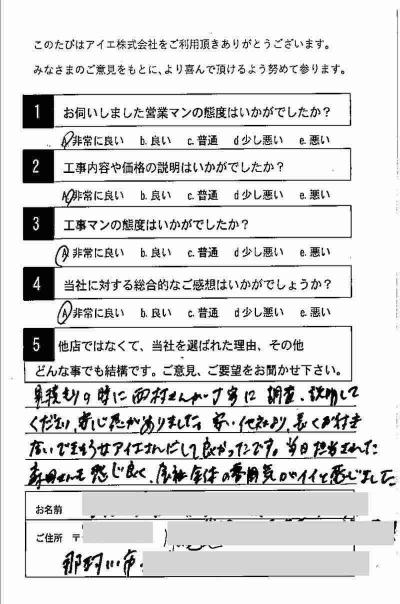 このたびはアイエ株式会社をご利用頂きありがとうございます。
みなさまのご意見をもとに、より喜んで頂けるよう努めて参ります。
1 お伺いしました営業マンの態度はいかがでしたか?
a.非常に良い b.良い c.普通 d少し悪い e.悪い
2 工事内容や価格の説明はいかがでしたか?
a.非常に良い b.良い c.普通 d少し悪い e.悪い
3 工事マンの態度はいかがでしたか?
a.非常に良い b.良い c.普通 d少し悪い e.悪い
4 当社に対する総合的なご感想はいかがでしょうか?
a.非常に良い b.良い c.普通 d少し悪い e.悪い
5 他店ではなくて、当社を選ばれた理由、その他
どんな事でも結構です。ご意見、ご要望をお聞かせ下さい。
見積もりの時に西村さんが丁寧に調査、説明して
くださり、安心感がありました。他社より、長くお付き
合いできそうなアイエさんにして良かったです。当日担当された
森田さんも感じ良く、会社全体の雰囲気がイイと感じました
お名前
ご住所 〒
那珂川市